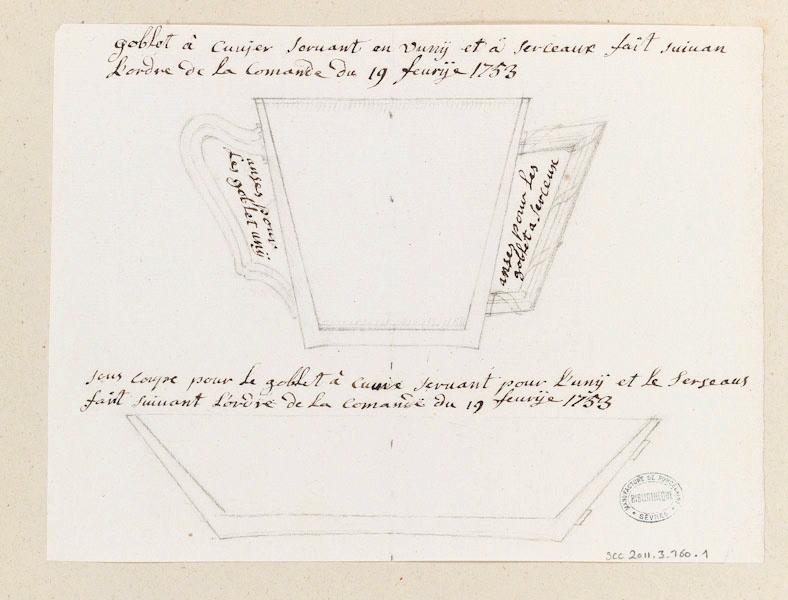 goblet à Cuujer Servant en Vunÿ et à Serceaux fait suivan
L'ordre de la Comande du 19 feurÿe 1753
anses pour
Les goblet unÿ
anses pour Les
goblet a Serceux
sous Coupe pour le goblet à Cuuire Servant pour L'unÿ et le Serseaus
fait suivant L'ordre de la Comande du 19 feurÿe 1753
MANUFACTURE DE PORCELAINE
BIBLIOTHEQUE
SÈVRES
SCC 2011.3.760.1